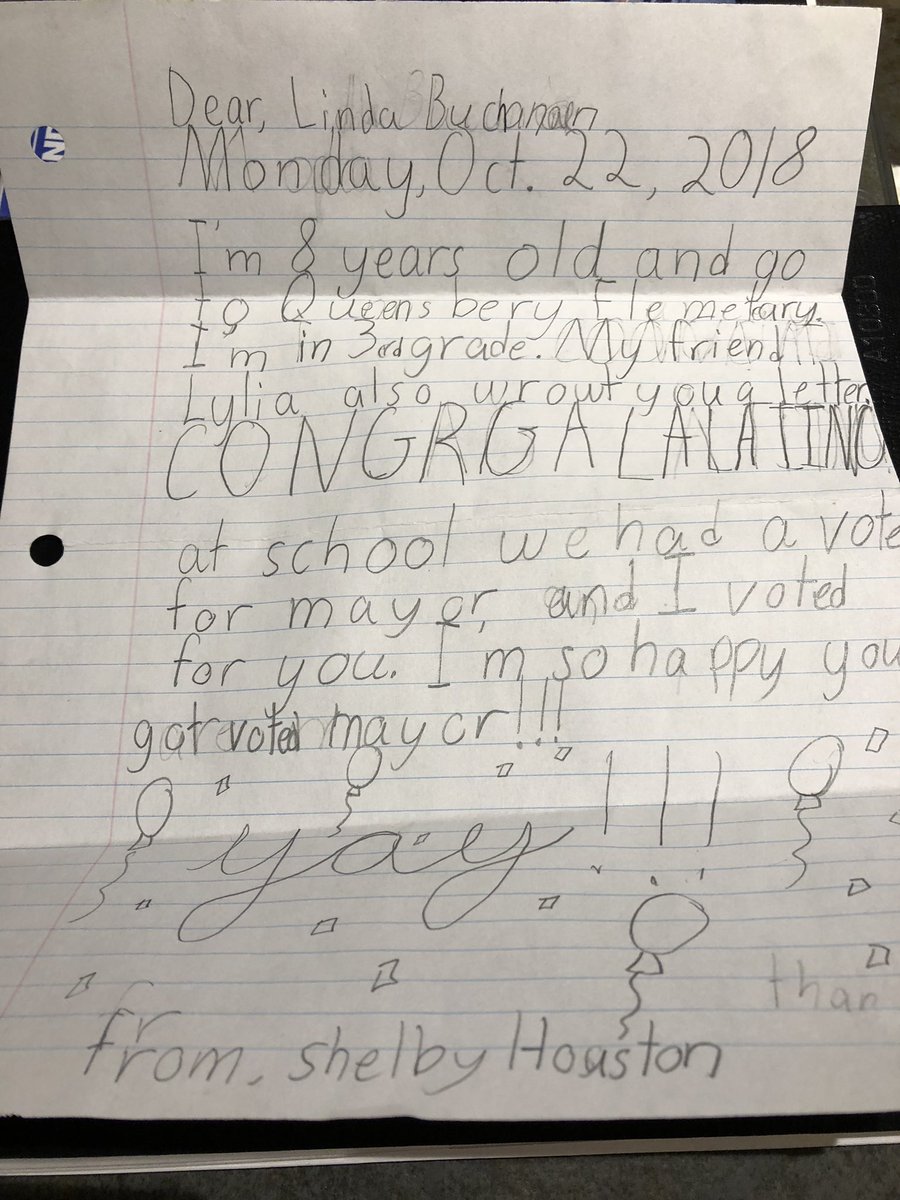 Dear, Linda Buchanaen
Monday, Oct. 22, 2018
I'm 8 years old and go
to Queens bery Elemetary.
I'm in 3rd grade. My friend
Lylia also wrout you a letter.
CONGRGALALATIINO
at school we had a vote
for mayor, and I voted
for you. I'm so happy you
got voted mayor!!!
yay!!!
than
fr
from, Shelby Houston